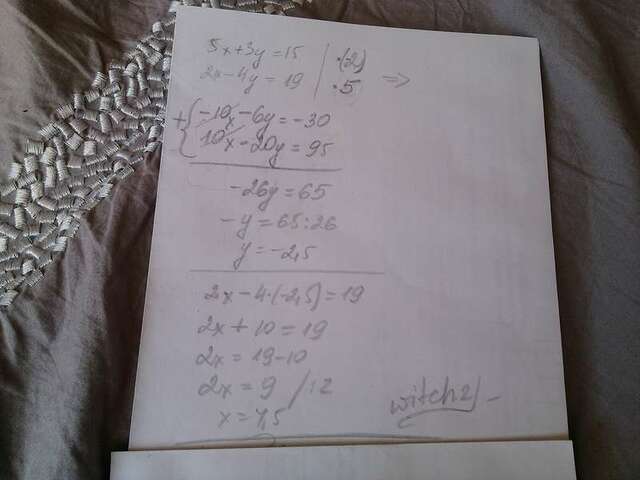 5x+3y=15 | ·(-2)
2x-4y=19 | ·5 =>
+{ -10x-6y=-30
10x-20y=95
-26y=65
-y=65:26
y=-2,5
2x-4·(-2,5)=19
2x+10=19
2x=19-10
2x=9 /:2
x=4,5
witch2